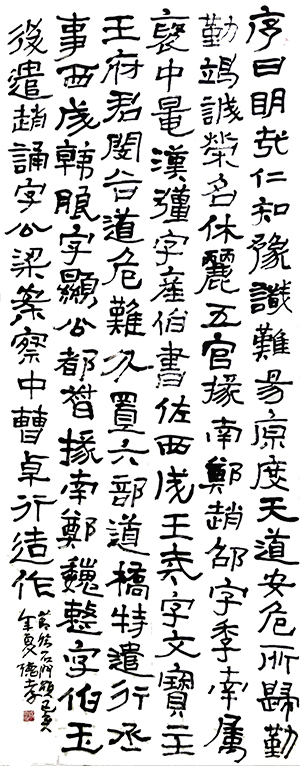 序曰明哉仁知豫識難易原度天道安危所歸勤
勤竭誠榮名休麗五官掾南鄭趙邵字季南属
襃中晁漢彊字産伯書佐西成王戒字文寶主
王府君閔谷道危難分置六部道橋特遣行丞
事西成韓朖字顯公都督掾南鄭魏整字伯玉
後遣趙誦字公梁案察中曹卓行造作
石門頌己亥
年夏德孝